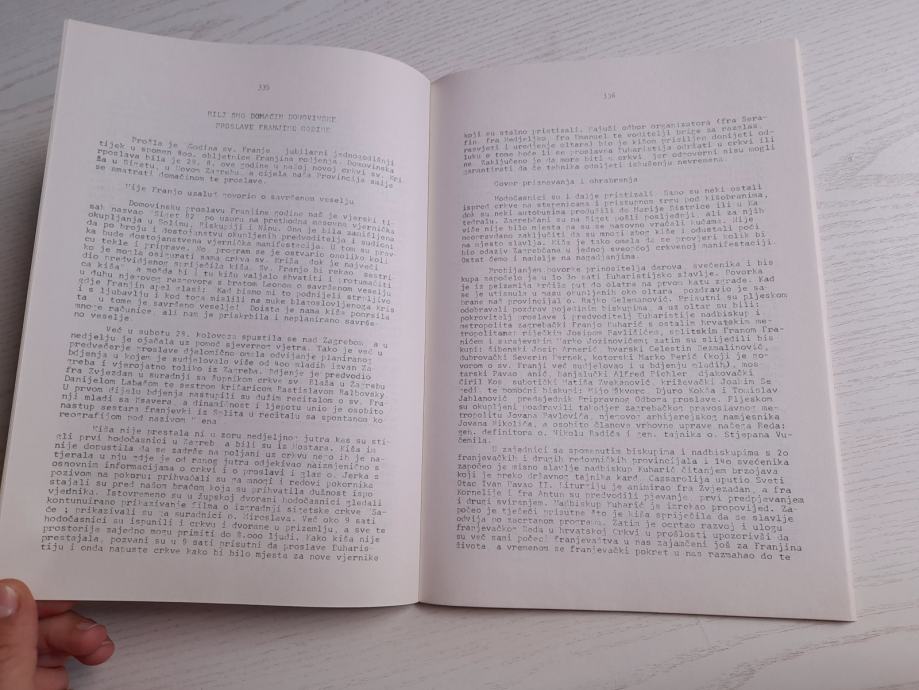 335
BILI SMO DOMAĆIN DOMOVINSKE
PROSLAVE FRANJINE GODINE
Prošla je Godina sv. Franje jubilarni jednogodišnji
tijek u spomen 800. obljetnice Franjina rođenja. Domovinska
proslava bila je 29. 8. ove godine u našoj novoj crkvi sv. Kri
ža u Sigetu, u Novom Zagrebu, a cijela naša Provincija smije
se smatrati domaćinom te proslave.
Nije Franjo uzalud govorio o savršenom veselju
Domovinsku proslavu Franjine godine naš je vjerski ti-
sak nazvao "Siget 82" po uzoru na prethodna masovna vjernička
okupljanja u Solinu, Biskupiji i Ninu. Ona je bila zamišljena
da po broju i dostojanstvu okupljenih predvoditelja i sudioni
ka bude dostojanstvena vjernička manifestacija. U tom su prav-
cu tekle i priprave. No, program se je ostvario onoliko koli-
ko je mogla osigurati sama crkva sv. Križa, dok je najveći
dio predviđenog spriječila kiša. Sv. Franjo bi rekao "sestri-
ca kiša" a možda bi i tu kišu valjalo shvatiti i protumačiti
u duhu njegovog razgovora s bratom Leonom o savršenom veselju
gdje Franjin apel glasi: Kad bismo mi to podnijeli strpljivo
i s ljubavlju i kod toga mislili na muke blagoslovljenoga Kris
ta u tome je savršeno veselje! Doista je nama kiša pomrsila
mnoge računice, ali nam je priskrbila i neplanirano savrše-
no veselje.
Već u subotu 28. kolovoza spustila se nad Zagrebom a u
nedjelju je ojačala uz pomoć sjevernog vjetra. Tako je već u
predvečerje proslave djelomično omela odvijanje planiranog
bdjenja u kojem je sudjelovalo više od 800 mladih izvan Za-
greba i vjerojatno toliko iz Zagreba. Bdjenje je predvodio
fra Zvjezdan u suradnji sa župnikom crkve sv. Blaža u Zagrebu
Danijelom Labašom te sestrom križaricom Rastislavom Ralbovsky.
U prvom dijelu bdjenja nastupili su dužim recitalom o sv. Fra-
nji mladi sa Ksavera, a dinamičnost i ljepotu unio je osobito
nastup sestara franjevki iz Splita u recitalu sa spontanom ko-
reografijom pod nazivom
Kiša nije prestala ni u zoru nedjeljnog jutra kad su sti-
gli prvi hodočasnici u Zagreb a bili su iz Mostara. Kiša im
nije dopustila da se zadrže na poljani uz crkvu no ih je na-
tjerala u nju gdje je od ranog jutra odjekivao naizmjenično s
osnovnim informacijama o crkvi i o proslavi i glas o. Jerka s
pozivom na pokoru; prihvaćali su ga mnogi i redovi pokornika
stajali su pred našom braćom koja su prihvatila dužnost ispo
vjednika. Istovremeno su u župskoj dvorani hodočasnici gledali
kontunuirano prikazivanje filma o izgradnji sigetske crkve. Sa-
će ; prikazivali su ga suradnici o. Miroslava. Već oko 9 sati
hodočasnici su ispunili i crkvu i dvorane u prizemlju, a sve te
prostorije zajedno mogu primiti do 8.000 ljudi. Kako kiša nije
prestajala, pozvani su u 9 sati prisutni da proslave Euharis-
tiju i onda napuste crkvu kako bi bilo mjesta za nove vjernike
336
koji su stalno pristizali. Majuši odbor organizatora (fra Sera-
fin, fra Nedjeljko, fra Emanuel te voditelji brige za razglas,
rasvjetu i uređenje oltara) bio je kišom prisiljen donijeti od-
luku o tome hoće li se proslava Euharistije održati u crkvi ili
ne. Zaključeno je da mora biti u crkvi, jer odgovorni nisu mogli
garantirati da će tehnika odoljeti iskušenju nevremena.
Govor priznavanja i ohrabrenja
Hodočasnici su i dalje pristizali. Samo su neki ostali
ispred crkve na stepenicama i pristupnom trgu pod kišobranima,
dok su neki autobusima produžili do Marije Bistrice ili u Ka
tedralu. Zagrebčani su na Siget pošli posljednji, ali za njih
više nije bilo mjesta pa su se masovno vraćali kućama. Nije
neopravdano zaključiti da su mnogi zbog kiše i odustali poći
na mjesto slavlja. Kiša je tako omela da se provjeri kolik bi
bio odaziv Zagrebčana u jednoj ovećoj crkvenoj manifestaciji.
Ostat ćemo i nadalje na nagađanjima.
Probijanjem povorke prinositelja darova svećenika i bis
kupa započelo je u 10 30 sati Euharistijsko slavlje. Povorka
je iz prizemlja vršila put do oltara na prvom katu zgrade. Kad
se je utisnula u masu okupljenih oko oltara pozdravio je sa-
brane naš provincijal o. Rajko Gelemanović. Prisutni su pljeskom
odobravali pozdrav pojedinim biskupima, a uz oltar su bili:
pokrovitelj proslave i predvoditelj Euharistije nadbiskup i
metropolita zagrebački Franjo Kuharić s ostalim hrvatskim me-
tropolitama: riječkim Josipom Pavlišićem, splitskim Franom Fra-
nićem i sarajevskim Markom Jozinovićem; zatim su slijedili bis
kupi: šibenski Josip Arnerić hvarski Celestin Bezmalinović,
dubrovački Severin Pernek, kotorski Marko Perić (koji je go-
vorom o sv. Franji već sudjelovao i u bdjenju mladih), mos-
tarski Pavao Žanić, banjalučki Alfred Pichler đakovački
Ćiril Kos subotički Matiša Zvekanović, križevački Joakim Se-
gedi te pomoćni biskupi: Mijo Škvorc, Djuro Kokša i Tomislav
Jablanović predsjednik Pripravnog Odbora proslave. Pljeskom
su okupljeni pozdravili također zagrebačkog pravoslavnog me-
tropolitu Jovana Pavlovića, njegovog arhijerejskog namjesnika
Jovana Nikolića, a osobito članove vrhovne uprave našega Reda:
gen. definitora o. Nikolu Radića i gen. tajnika o. Stjepana Vu-
čemila.
U zajednici sa spomenutim biskupima i nadbiskupima s 20
franjevačkih i drugih redovničkih provincijala i 140 svećenika
započeo je misno slavlje nadbiskup Kuharić čitanjem brzojava
koji je preko državnog tajnika kard. Cassarolija uputio Sveti
Otac Ivan Pavao II. Liturgiju je animirao fra Zvjezdan, a fra
Kornelije i fra Antun su predvodili pjevanje prvi predpjevanjem
i drugi sviranjem. Nadbiskup Kuharić je izrekao propovijed. Za-
počeo je tješeći prisutne što je kiša spriječila da se slavlje
odvija po zacrtanom programu. Zatim je ocrtao razvoj i ulogu
franjevačkog Reda u hrvatskoj Crkvi u prošlosti upozorivši da
su već sami počeci franjevaštva u nas zajamčeni još za Franjina
života a vremenom se franjevački pokret u nas razmahao do te